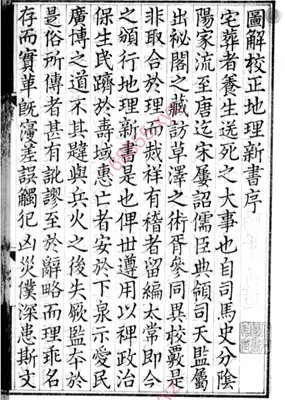 圖解校正地理新書序
宅葬者養生送死之大事也自司馬史分陰
陽家流至唐迄宋屡詔儒臣典領司天監屬
出祕閣之藏訪草澤之術胥參同異校覈是
非取合於理而災祥有稽者留編太常即今
之頒行地理新書是也俾世遵用以裨政治
保生民躋於壽域惠亡者安於下泉示愛民
廣博之道不其韙與兵火之後失厥監本於
是俗所傳者甚有訛謬至於辭略而理乖名
存而實革旣濅差誤觸犯凶災僕深患斯文